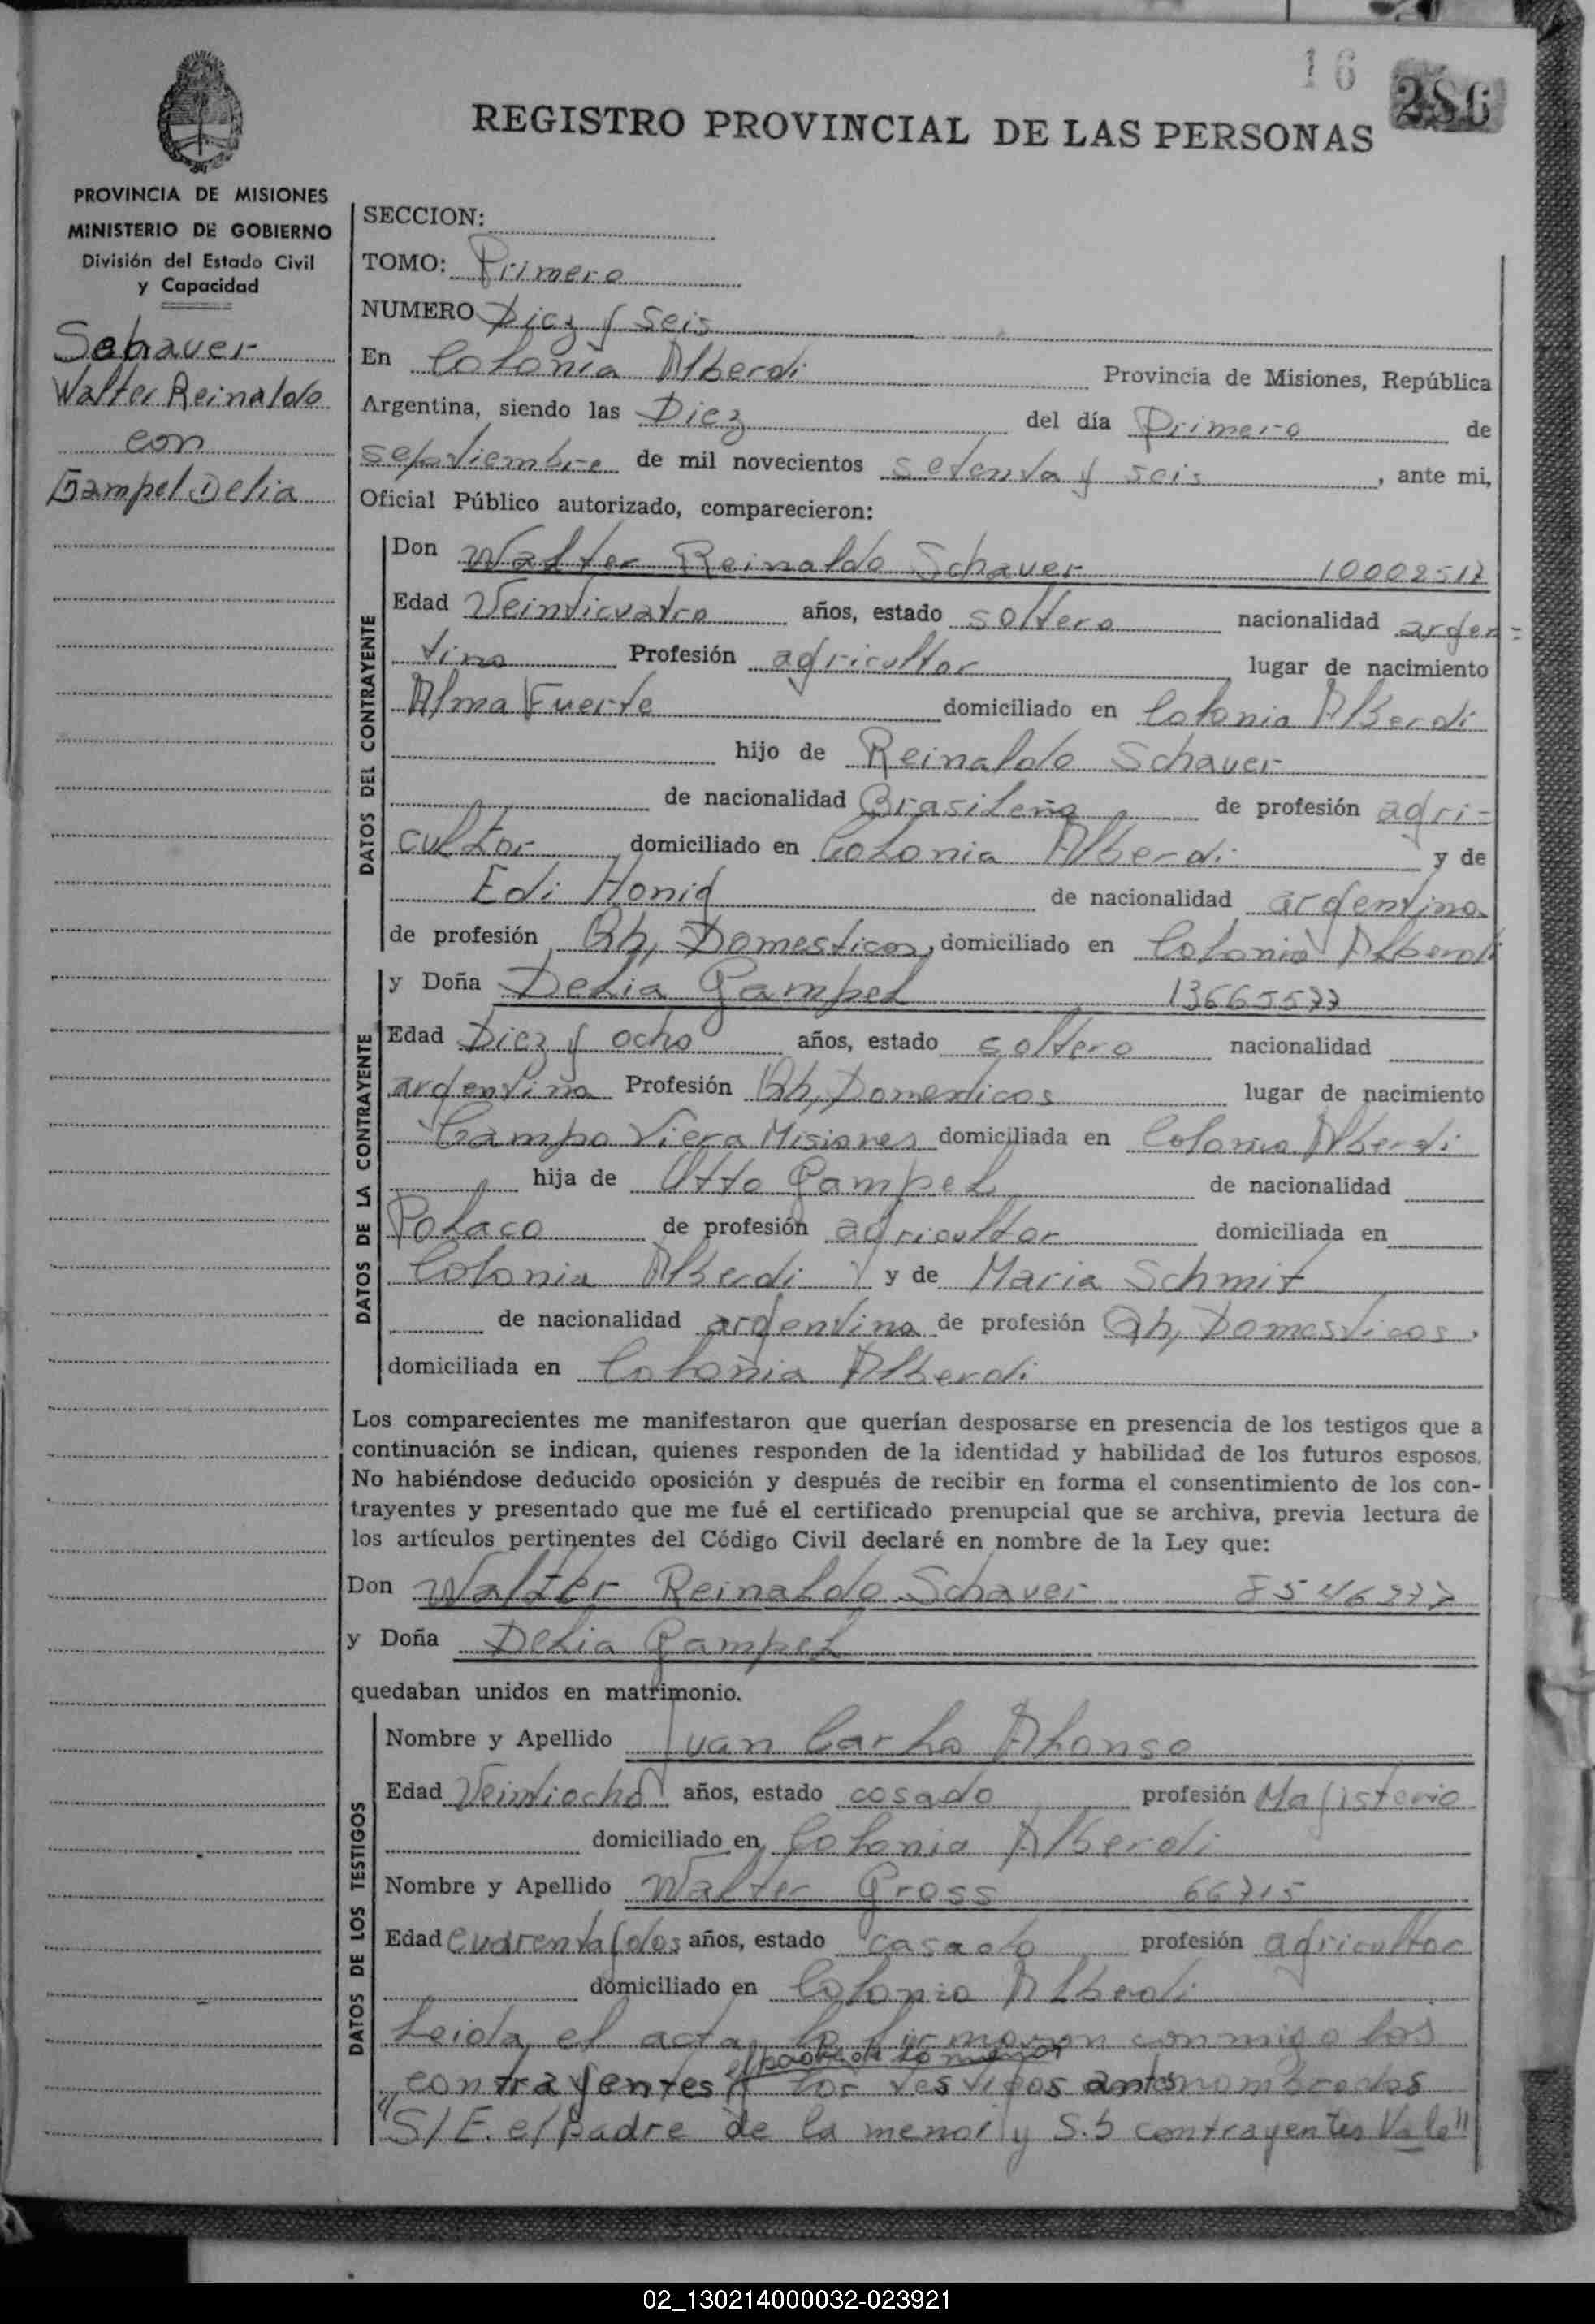 16
286
REGISTRO PROVINCIAL DE LAS PERSONAS
PROVINCIA DE MISIONES
MINISTERIO DE GOBIERNO
División del Estado Civil
y Capacidad
Schauer
Walter Reinaldo
con
Gampel Delia
SECCION:
TOMO: Primero
NUMERO Diez y Seis
En Colonia Alberdi Provincia de Misiones, República
Argentina, siendo las Diez del día Primero de
septiembre de mil novecientos setenta y seis, ante mi,
Oficial Público autorizado, comparecieron:
DATOS DEL CONTRAYENTE
Don Walter Reinaldo Schauer 10002517
Edad Veinticuatro años, estado soltero nacionalidad argen=
tino Profesión agricultor lugar de nacimiento
Alma Fuerte domiciliado en Colonia Alberdi
hijo de Reinaldo Schauer
de nacionalidad Brasileña de profesión agri=
cultor domiciliado en Colonia Alberdi y de
Edi Honig de nacionalidad argentina
de profesión Qh, Domesticos, domiciliado en Colonia Alberdi
DATOS DE LA CONTRAYENTE
y Doña Delia Gampel 13665577
Edad Diez y ocho años, estado soltero nacionalidad
argentina Profesión Qh, Domesticos lugar de nacimiento
Campo Viera Misiones domiciliada en Colonia Alberdi
hija de Otto Gampel de nacionalidad
Polaco de profesión agricultor domiciliada en
Colonia Alberdi y de Maria Schmit
de nacionalidad argentina de profesión Qh, Domesticos,
domiciliada en Colonia Alberdi
Los comparecientes me manifestaron que querían desposarse en presencia de los testigos que a
continuación se indican, quienes responden de la identidad y habilidad de los futuros esposos.
No habiéndose deducido oposición y después de recibir en forma el consentimiento de los con-
trayentes y presentado que me fué el certificado prenupcial que se archiva, previa lectura de
los artículos pertinentes del Código Civil declaré en nombre de la Ley que:
Don Walter Reinaldo Schauer
y Doña Delia Gampel
quedaban unidos en matrimonio.
DATOS DE LOS TESTIGOS
Nombre y Apellido Juan Carlo Alonso
Edad Veintiocho años, estado cosado profesión Magisterio
domiciliado en Colonia Alberdi
Nombre y Apellido Walter Gross 66715
Edad cuarenta y dos años, estado casado profesión agricultor
domiciliado en Colonia Alberdi
Leida el acta, la firmaron conmigo los
el padre de la menor
contrayentes y los testigos antes nombrados
"S/E. el padre de la menor y S.b contrayentes Vale"
02_130214000032-023921